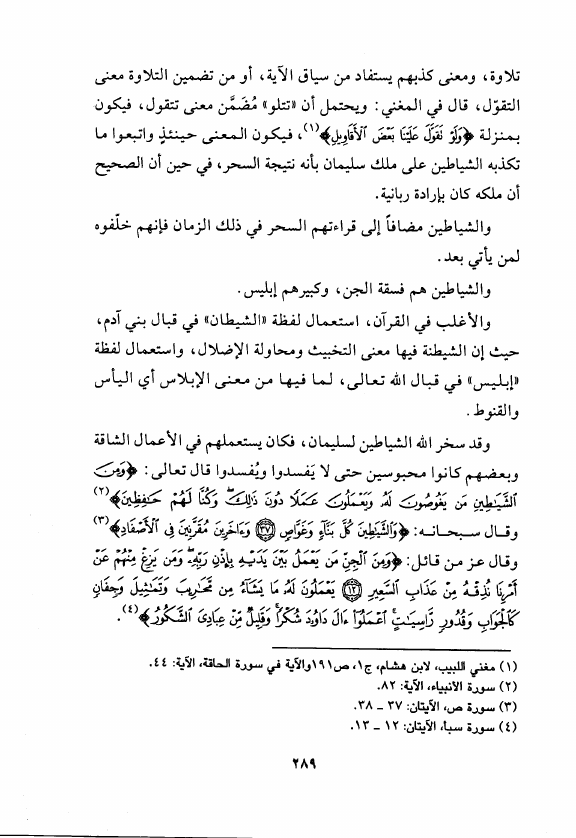 تلاوة، ومعنى كذبهم يستفاد من سياق الآية، أو من تضمين التلاوة معنى
التقوّل، قال في المغني: ويحتمل أن «تتلو» مُضَمَّن معنى تتقول، فيكون
بمنزلة ﴿وَلَوْ نَقَوَّلَ عَلَيْنَا بَعْضَ الْأَقَاوِيلِ﴾(١)، فيكون المعنى حينئذٍ واتبعوا ما
تكذبه الشياطين على ملك سليمان بأنه نتيجة السحر، في حين أن الصحيح
أن ملكه كان بإرادة ربانية.
والشياطين مضافاً إلى قراءتهم السحر في ذلك الزمان فإنهم خلّفوه
لمن يأتي بعد.
والشياطين هم فسقة الجن، وكبيرهم إبليس.
والأغلب في القرآن، استعمال لفظة «الشيطان» في قبال بني آدم،
حيث إن الشيطنة فيها معنى التخبيث ومحاولة الإضلال، واستعمال لفظة
«إبليس» في قبال الله تعالى، لما فيها من معنى الإبلاس أي اليأس
والقنوط.
وقد سخر الله الشياطين لسليمان، فكان يستعملهم في الأعمال الشاقة
وبعضهم كانوا محبوسين حتى لا يَفسدوا ويُفسدوا قال تعالى: ﴿وَمِنَ
الشَّيَاطِينِ مَن يَغُوصُونَ لَهُ وَيَعْمَلُونَ عَمَلًا دُونَ ذَٰلِكَ ۖ وَكُنَّا لَهُمْ حَافِظِينَ﴾(٢)
وقال سبحانه: ﴿وَالشَّيَاطِينَ كُلَّ بَنَّاءٍ وَغَوَّاصٍ ۝٣٧ وَآخَرِينَ مُقَرَّنِينَ فِي الْأَصْفَادِ﴾(٣)
وقال عز من قائل: ﴿وَمِنَ الْجِنِّ مَن يَعْمَلُ بَيْنَ يَدَيْهِ بِإِذْنِ رَبِّهِ ۖ وَمَن يَزِغْ مِنْهُمْ عَنْ
أَمْرِنَا نُذِقْهُ مِنْ عَذَابِ السَّعِيرِ ۝١٢ يَعْمَلُونَ لَهُ مَا يَشَاءُ مِن مَّحَارِيبَ وَتَمَاثِيلَ وَجِفَانٍ
كَالْجَوَابِ وَقُدُورٍ رَّاسِيَاتٍ ۚ اعْمَلُوا آلَ دَاوُودَ شُكْرًا ۚ وَقَلِيلٌ مِّنْ عِبَادِيَ الشَّكُورُ﴾(٤).
(١) مغني اللبيب، لابن هشام، ج١، ص١٩١والآية في سورة الحاقة، الآية: ٤٤.
(٢) سورة الأنبياء، الآية: ٨٢.
(٣) سورة ص، الآيتان: ٣٧ ـ ٣٨.
(٤) سورة سبأ، الآيتان: ١٢ ـ ١٣.
٢٨٩